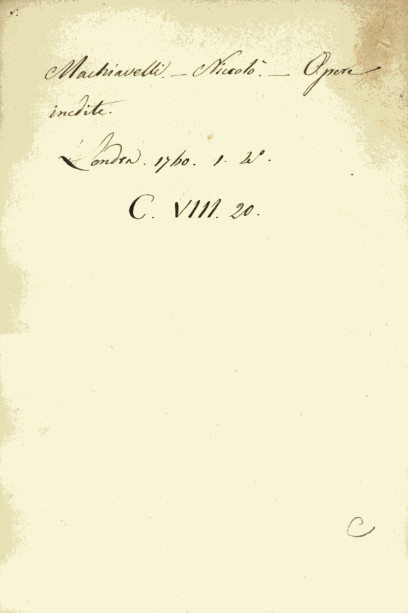 Machiavelli. – Niccolò. – Opere
inedite.
Londra. 1760. 1. 4º.
C. VIII. 20.
C